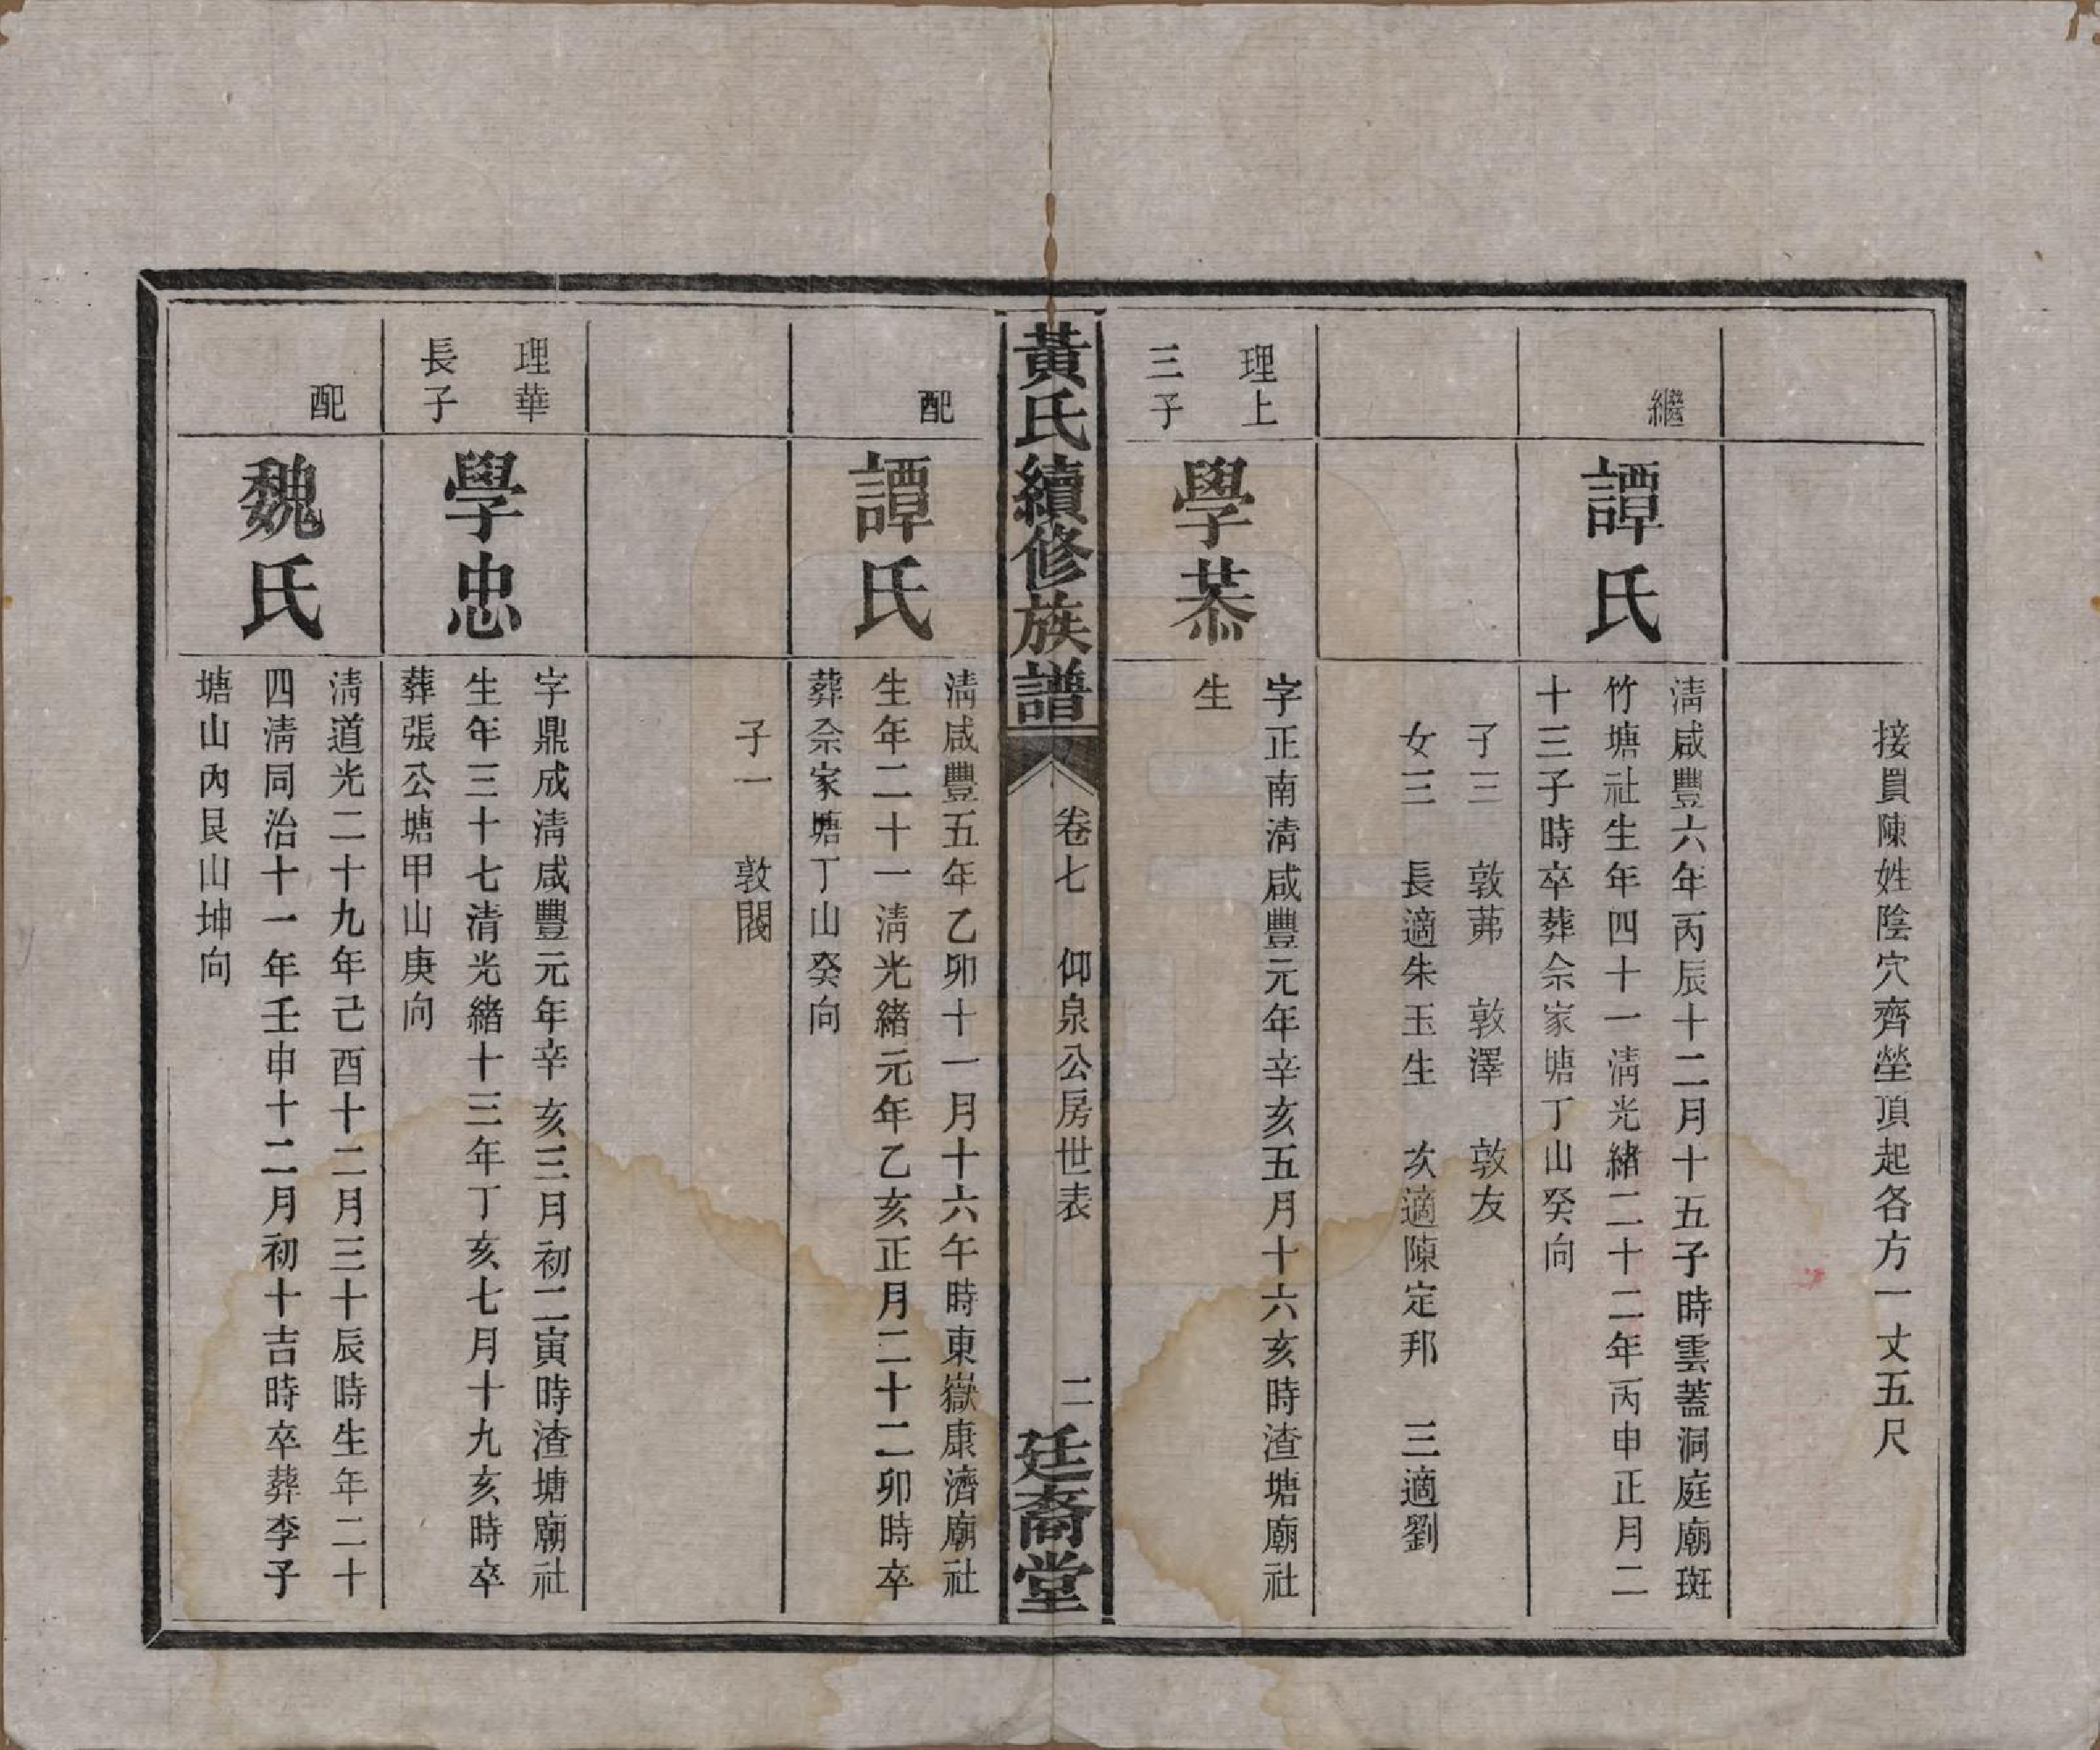 接買陳姓陰穴齊塋頂起各方一丈五尺
繼
譚氏
淸咸豐六年丙辰十二月十五子時雲蓋洞庭廟斑
竹塘社生年四十一淸光緒二十二年丙申正月二
十三子時卒葬佘家塘丁山癸向
子三 敦茀 敦澤 敦友
女三 長適朱玉生 次適陳定邦 三適劉
理上
三子
學恭
字正南淸咸豐元年辛亥五月十六亥時渣塘廟社
生
黃氏續修族譜
卷七 仰泉公房世表 二
廷裔堂
配
譚氏
淸咸豐五年乙卯十一月十六午時東嶽康濟廟社
生年二十一淸光緒元年乙亥正月二十二卯時卒
葬佘家塘丁山癸向
子一 敦閥
理華
長子
學忠
字鼎成淸咸豐元年辛亥三月初二寅時渣塘廟社
生年三十七清光緒十三年丁亥七月十九亥時卒
葬張公塘甲山庚向
配
魏氏
淸道光二十九年己酉十二月三十辰時生年二十
四淸同治十一年壬申十二月初十吉時卒葬李子
塘山內艮山坤向